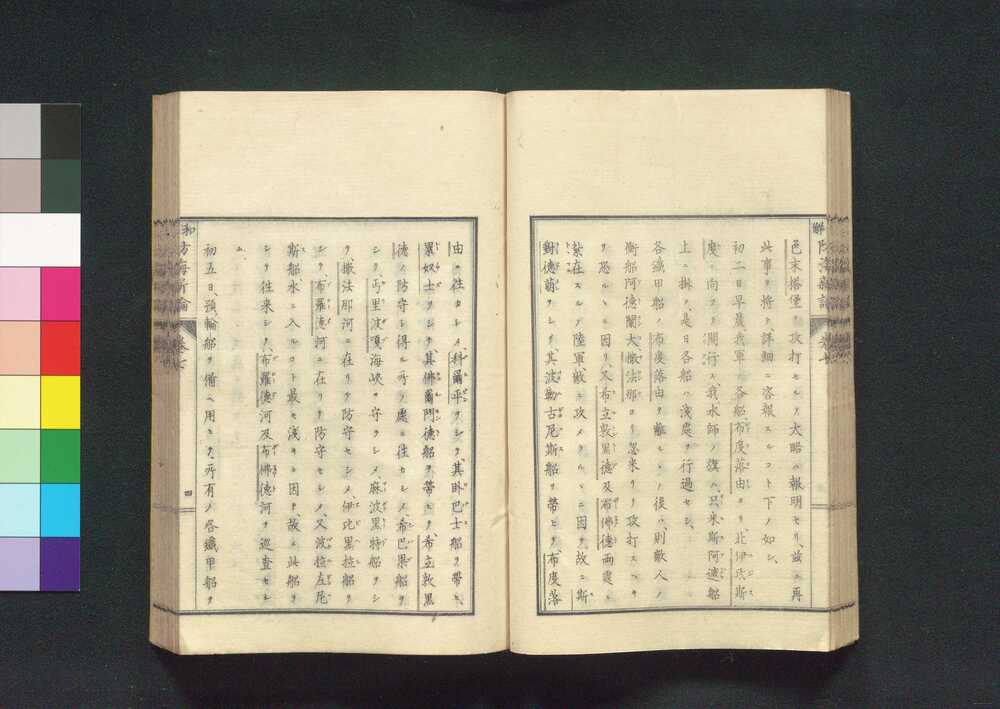 色末塔堡ヲ攻打セルノ大略ハ報明セリ、茲ニ再
此事ヲ將テ、詳細ニ咨報スルコト下ノ如シ、
初二日早晨我軍ノ各船、布度落由ヨリ、北伊坎斯
度ニ向フテ開行ス、我水師ノ旗ハ、只米斯阿遮船
上ニ掛ク、是日各船ハ浅處ヲ行過セシ、
各鐵甲船ノ布度落由ヲ離レシノ後ハ、則敵人ノ
衝船阿德蘭大撒法那ヨリ忽来リテ攻打スルヲ
ヲ恐ルニ因リ、又布立敦黒德及布佛德兩處ニ
紮在スルノ陸軍、敵ニ攻メラルヽニ因ヲ、故ニ斯
對德萌ヲシテ其波勒古尼斯船ヲ帶ヒ、布度落
由ニ往カシメ、科爾平ヲシテ其卧巴士船ヲ帶ヒ、
累奴士ヲシテ其佛爾門德船ヲ帶ヒテ、希立敦黒
德ノ防守シ得ル所ノ處ニ往カシメ、希巴果船ヲ
シテ、丐里波嘎海峽ヲ守ラシメ、麻波黒特船ヲシ
テ、撒法那河ニ在リテ防守セシメ、伊比黒拉船ヲ
シテ、布羅德河ニ在リテ防守セシメ、又波拉左尼
斯船水ニ入ルコト最モ浅キニ因テ、故ニ此船ヲ
シテ往来シテ、布羅德河及布佛德河ヲ巡査セシ
ム、
初五日、強輪船ヲ備ヘ用ヒテ、所有ノ各鐵甲船ヲ
防海新論
卷七
四